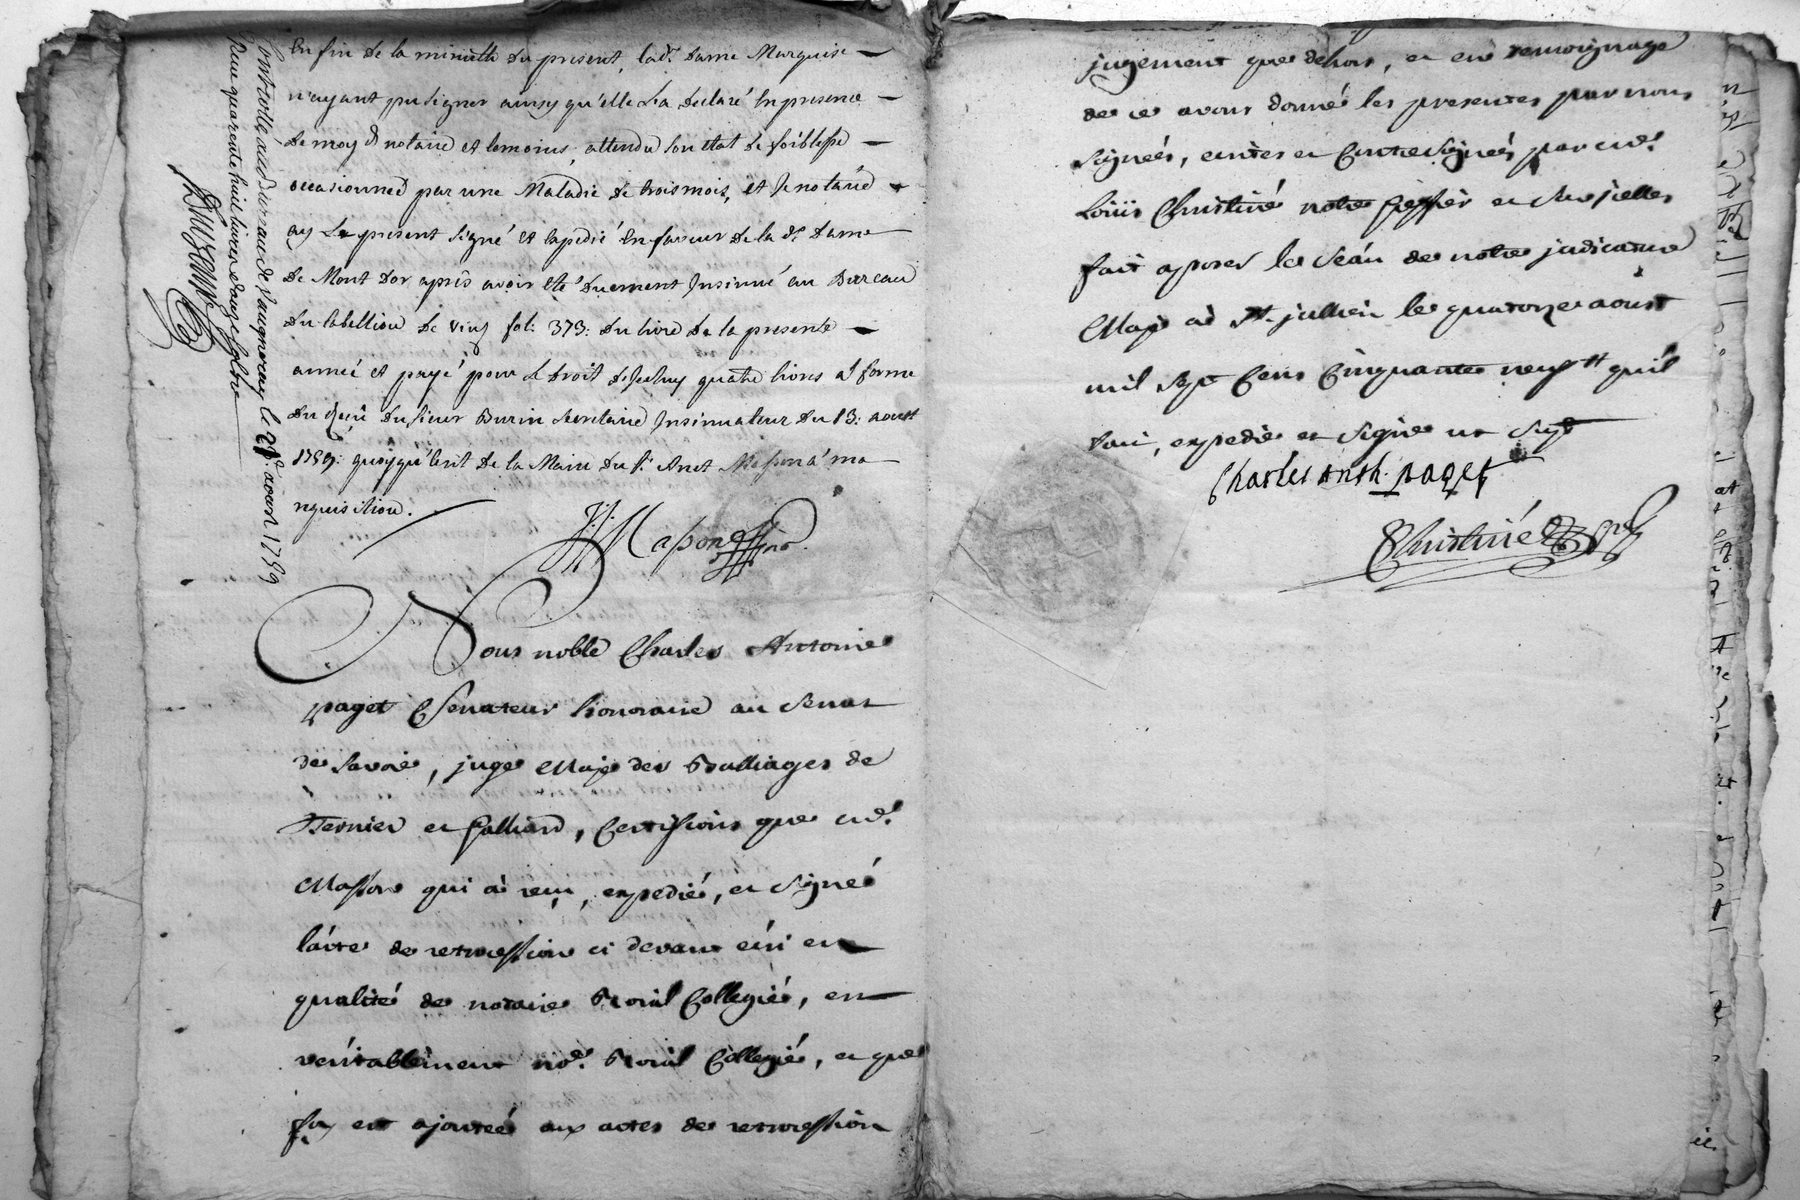 En fin de la minutte du present, lad.e Dame Marquise
n'ayant pu signer ainsy qu'elle l'a declaré en presence
de moy d. notaire et temoins, attendu son etat de foiblesse
occasionned par une Maladie de trois mois, et je notaire
ay le present signé et expedié en faveur de la d.e Dame
de Mont d'or après avoir eté duement Insinué au Bureau
du tabellion de fol: 373: du livre de la presente
année et payé pour le droit quatre livres a forme
du reçu du sieur Durin Secretaire Insinuateur du 13: aoust
1759: quoyqu'ecrit de la Main du s.r Anet a ma
requisition.
Masson
Controllé au Bureau de Vaugneray le aoust 1759
Reçu quarente huit livres douze sols
Nous noble Charles Antoine
paget Senateur honoraire au Senat
de Savoie, juge Maje des Bailliages de
Ternier et Gaillard, Certifions que m.e
Masson qui à reçu, expedié, et signé
l'acte de retrocession ci devant ecrit en
qualité de notaire Roial Collegié, en
veritablement no.e Roial Collegié, et que
foy est ajoutée aux actes de retrocession
jugement que dehors, et en temoignage
de ce avons donné les presentes par nous
signées, ecrites et Contresignées par m.e
Loüis Christiné notre Greffier et sur jcelles
fait aposer le Sceau de notre judicature
Maje à St. jullien le quatorze aoust
mil sept Cens Cinquante neuf
fait, expedié et signé
Charles Anth. paget
Christiné